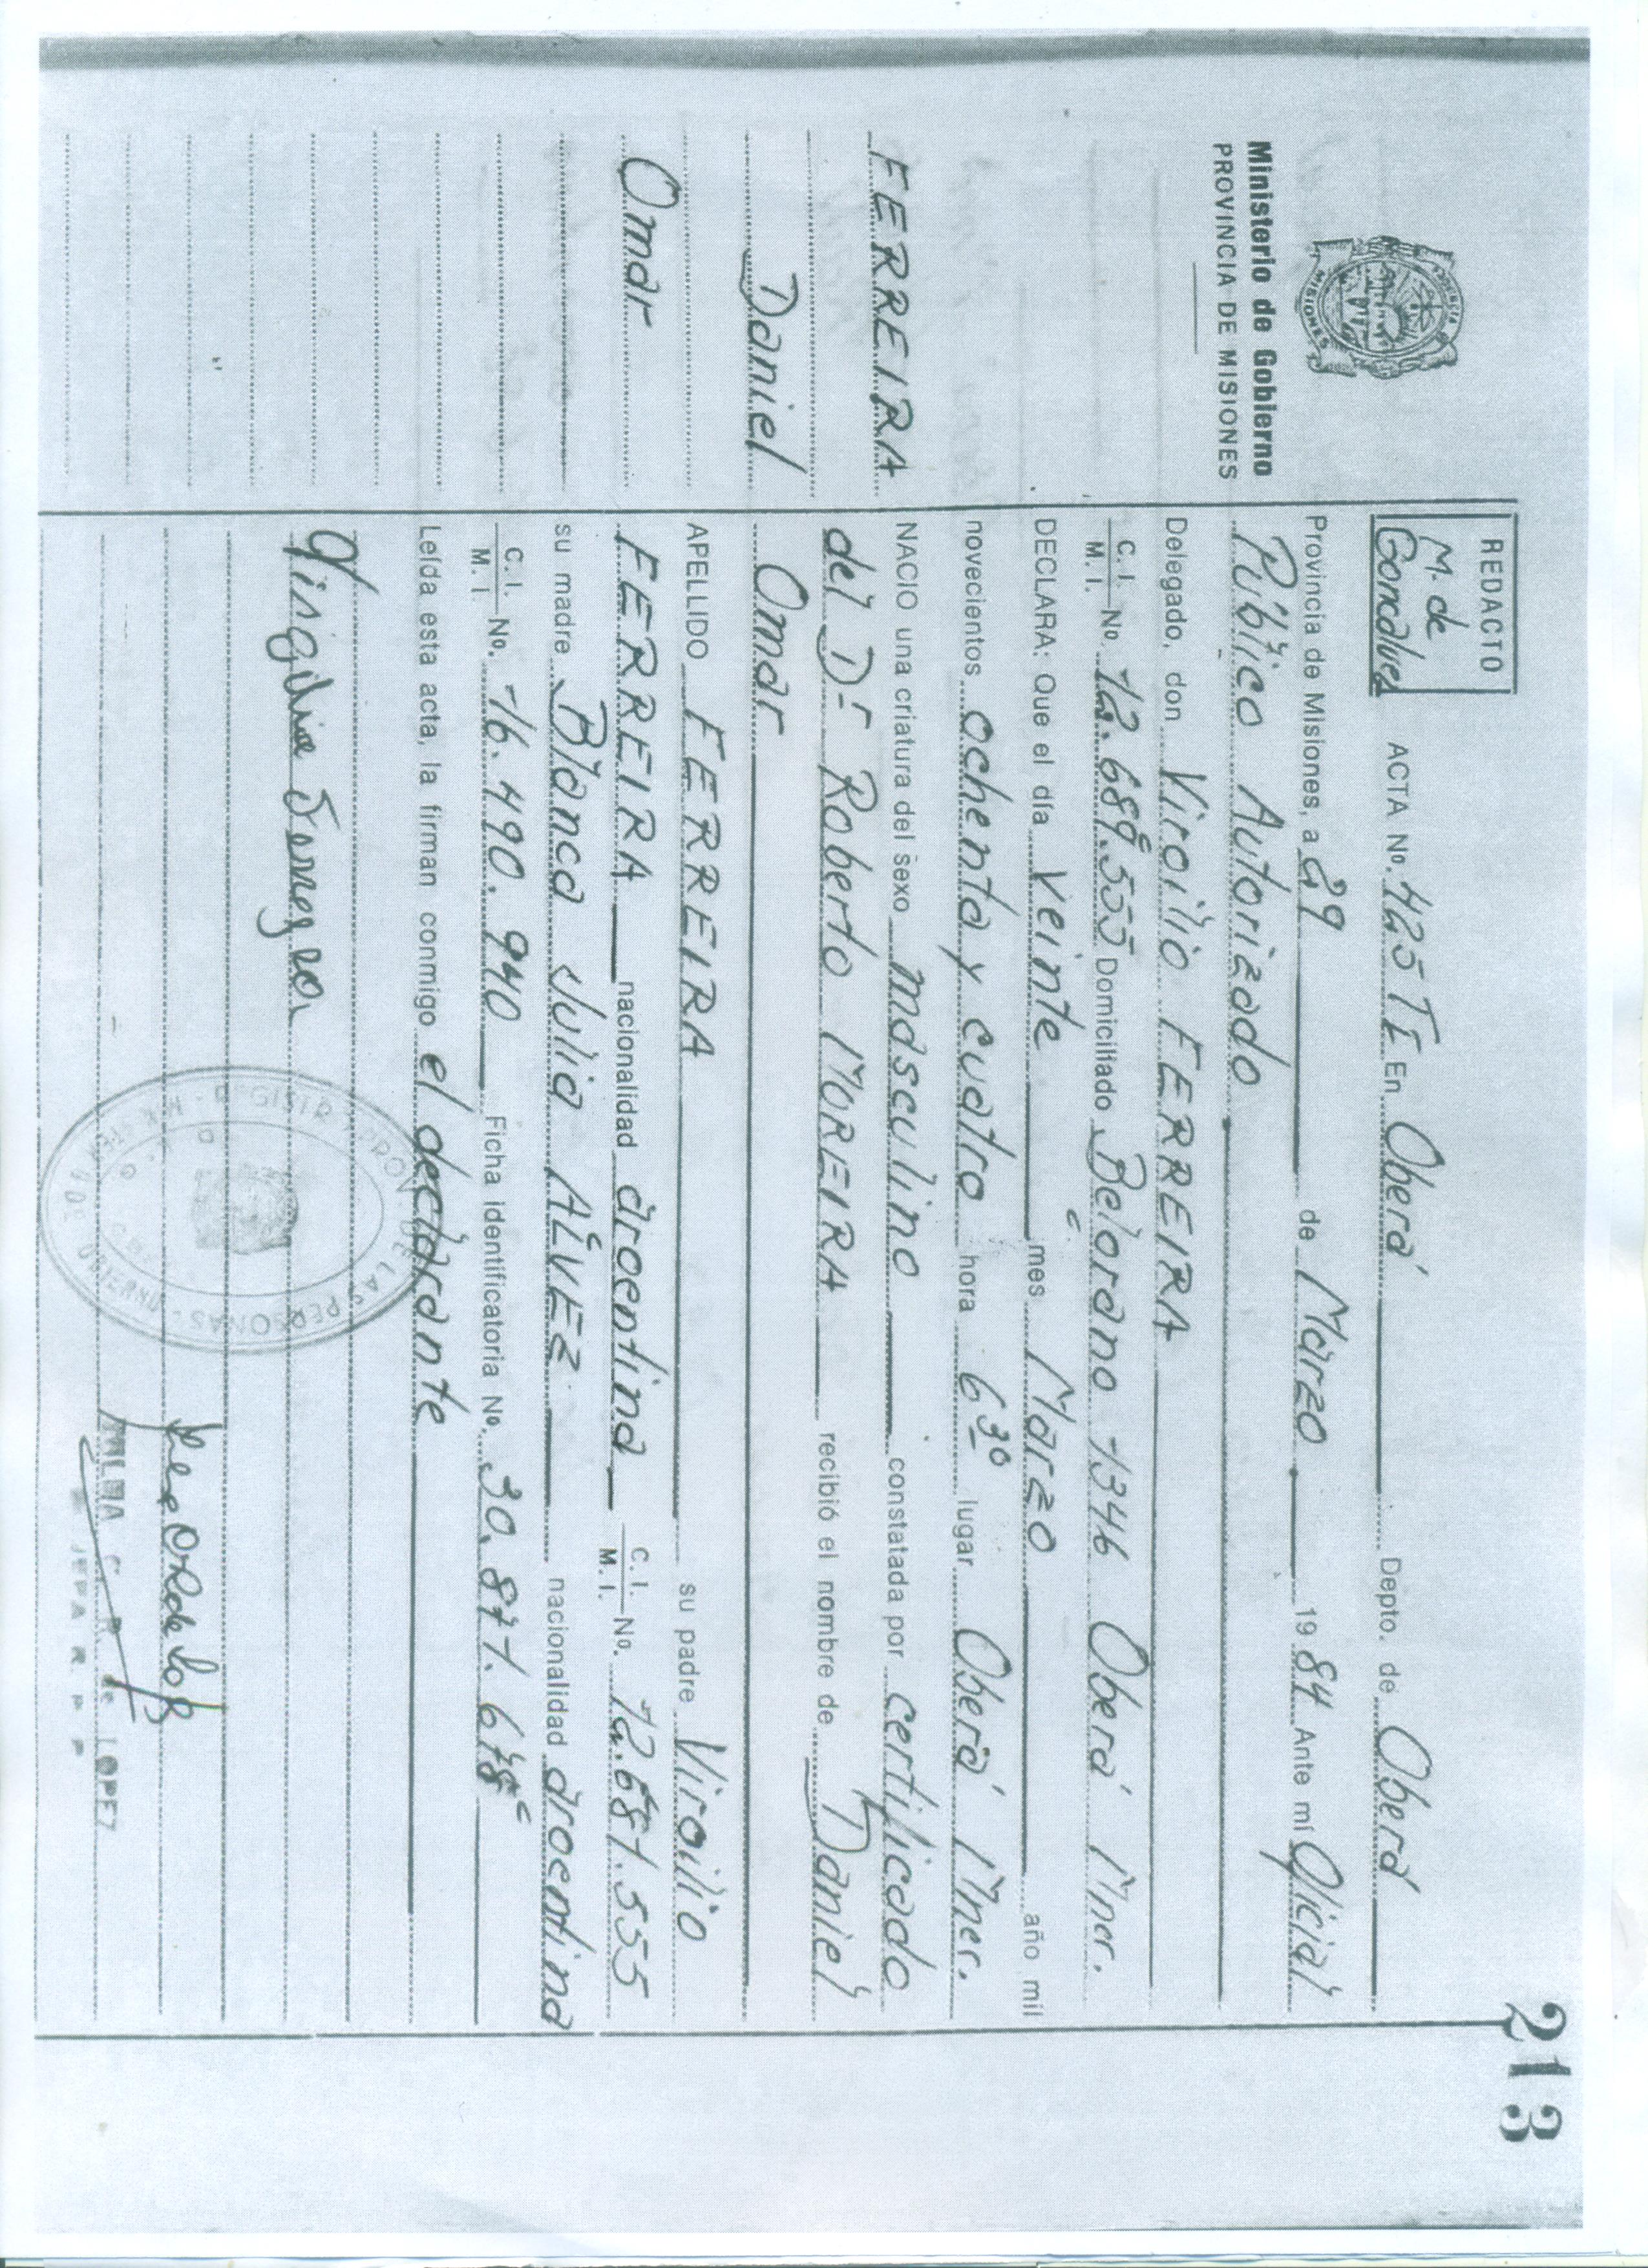 213
PROVINCIA DE MISIONES
Ministerio de Gobierno
PROVINCIA DE MISIONES
FERREIRA
Daniel
Omar
REDACTO
M. de
Goncalvez
ACTA Nº. 425 TI En Oberá Depto. de Oberá
Provincia de Misiones, a 29 de Marzo 1984 Ante mí Oficial
Público Autorizado
Delegado, don Virgilio FERREIRA
C. I. M. I. Nº 12.689.555 Domiciliado Belgrano 1346 Oberá Mnes.
DECLARA: Que el día Veinte mes Marzo año mil
novecientos ochenta y cuatro hora 6 30 lugar Oberá Mnes.
NACIO una criatura del sexo masculino constatada por certificado
del Dr Roberto MOREIRA recibió el nombre de Daniel
Omar
APELLIDO FERREIRA su padre Virgilio
FERREIRA nacionalidad argentina C. I. M. I. Nº. 12.681.555
su madre Blanca Julia ALVEZ nacionalidad argentina
C. I. M. I Nº. 16.490.940 Ficha identificatoria Nº. 30.871.678
Leída esta acta, la firman conmigo el declarante
Virgilio Ferreira
DE LAS PERSONAS
LOPEZ